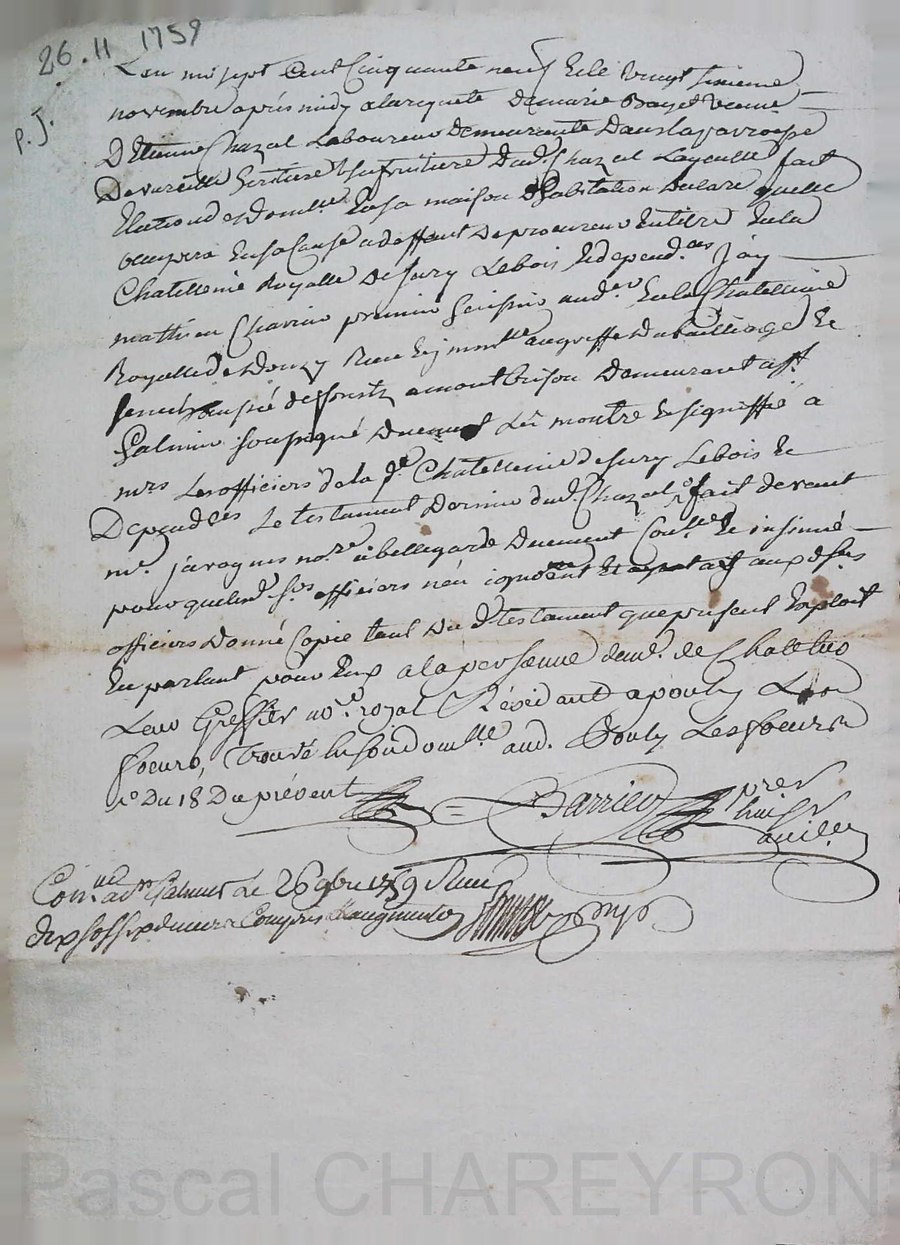 26.11 1759
P.J.
L'an mil sept Cent Cinquante neuf Et le Vingt sixieme
novembre après midy a la requete de marie Bayet Veuve
D'Etienne Chazal Laboureur demeurante dans la parroisse
De vareille heritiere Usufruitiere dud. Chazal Laquelle fait
Election de domlle En sa maison D'habitation Declare quelle
occupera En sa Cause a deffaut De procureur En titre En la
Chatellenie Royalle De Sury Lebois Et dependces Jay
mathieu premier huissier aud. En la Chatellenie
Royalle de Donzy au greffe du bailliage Et
senechaussée de forestz a montbrison Demeurant a st
Galmier soussigné Duement montré Et signiffié a
mrs Les officiers de la de Chatellenie de Sury Lebois Et
Dependces Le testament Dernier dud. Chazal fait devant
me. javogues nore a bellegarde Duement Conllé Et insinué
pour que lesd. srs officiers n'en ignorent Et ay aux dts srs
officiers Donné Copie tant Du dt testament que présent Exploit
En parlant pour Eux a la personne de me. de Chatelus
Leur Greffier nore royal Résidant a pouly Les
foeurs, Trouvé En son domlle aud. Pouly Les foeurs
Ce Du 18 Du présent
Barrieu pres
huisr
Conlle a st Galmier Le 26 9bre 1759 Reçu
Compris L'augmenton
Pascal CHAREYRON